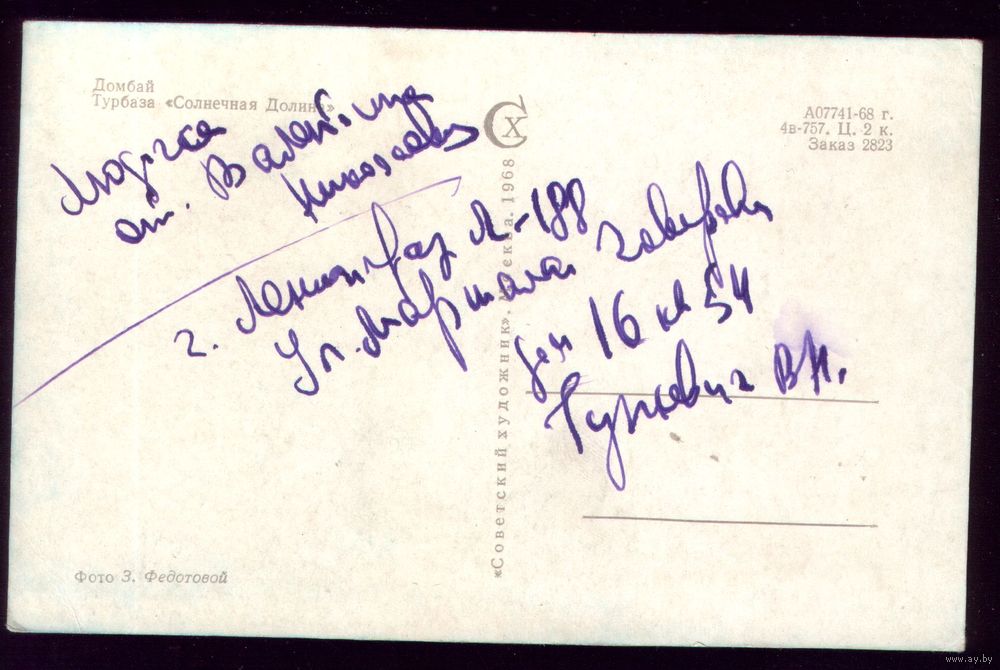 Домбай
Турбаза «Солнечная Долина»
А07741-68 г.
4в-757. Ц. 2 к.
Заказ 2823
СХ
от. Валентина
Николаевна
г. Ленинград Л-188
Ул. Маршала Говорова
дом 16 кв 54
Туркевич В Н.
«Советский художник». Москва. 1968
Фото З. Федотовой
www.ay.by